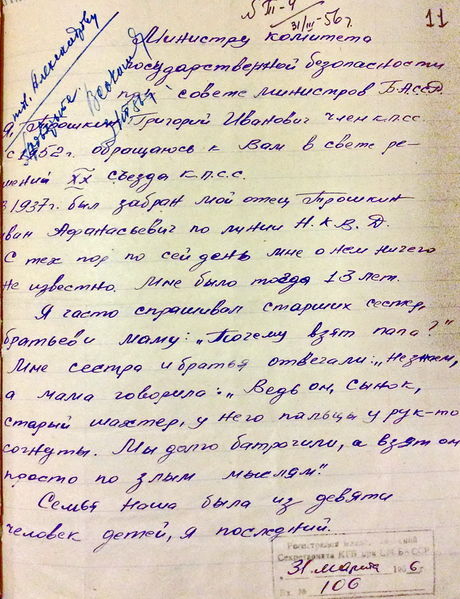 № III-4
31/III-56 г.
11
Министру комитета
государственной безопасности
при совете министров БАССР.
тт. Александрову
Я, Трошкин Григорий Иванович член к.п.сс.
с 1952 г. обращаюсь к Вам в свете ре-
шений XX съезда к.п.с.с.
В 1937 г. был забран мой отец Трошкин
Иван Афанасьевич по линии Н.К.В.Д.
С тех пор по сей день мне о нем ничего
не известно. Мне было тогда 13 лет.
Я часто спрашивал старших сестер,
братьев и маму: „Почему взят папа?"
Мне сестра и братья отвечали: „не знаем,
а мама говорила: „Ведь он, сынок,
старый шахтер, у него пальцы у рук-то
согнуты. Мы долго батрочили, а взят он
просто по злым мыслям".
Семья наша была из девяти
человек детей, я последний.
Секретариата КГБ при СМ БАССР
31 марта 1956 г.
Вх. № 106